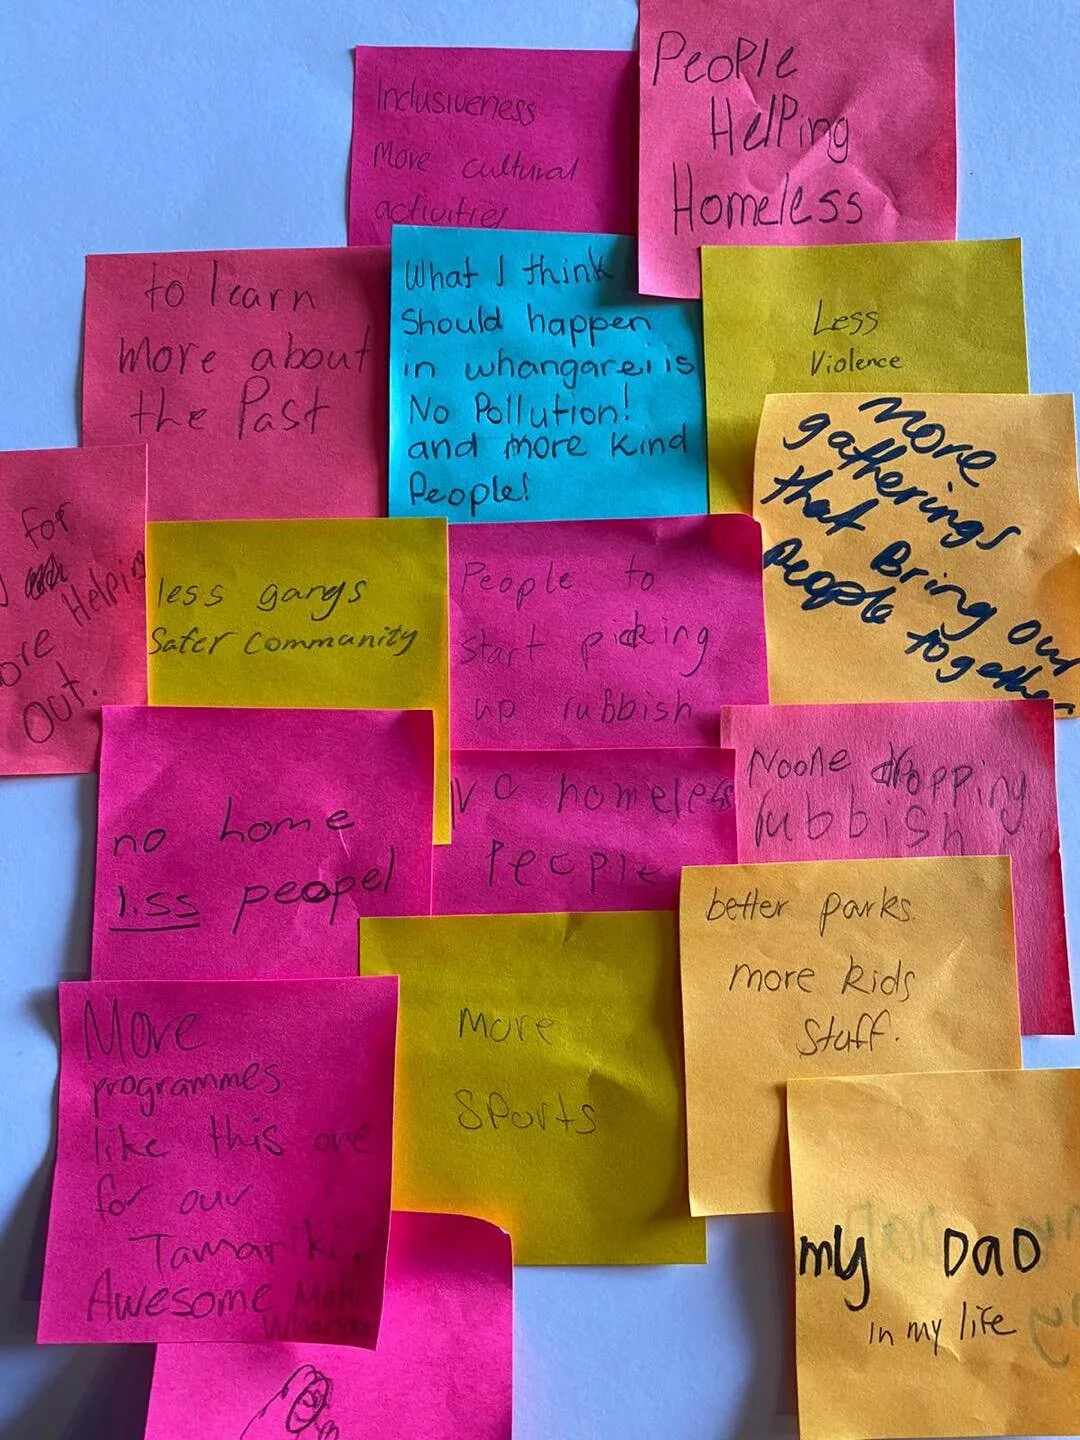 Inclusiveness
More cultural
activities
PeoPle
HelPing
Homeless
to learn
more about
the Past
What I think
Should happen
in whangarei is
No Pollution!
and more kind
People!
Less
Violence
more
gatherings
that Bring our
people together
for
Helping
ore
Out.
less gangs
Safer community
People to
start picking
up rubbish
no home
liss peopel
No homeless
People
Noone dropping
rubbish
better parks.
more kids
Stuff.
More
programmes
like this one
for our
Tamariki.
Awesome Mahi
More
Sports
my DAD
in my life